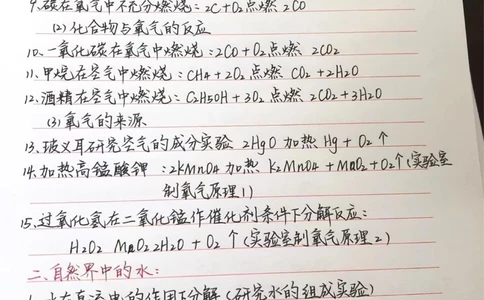 9.碳在氧气中不充分燃烧:2C+O2点燃 2CO
(2)化合物与氧气的反应
10.一氧化碳在氧气中燃烧:2CO+O2点燃 2CO2
11.甲烷在空气中燃烧:CH4+2O2点燃 CO2+2H2O
12.酒精在空气中燃烧:C2H5OH+3O2点燃 2CO2+3H2O
(3)氧气的来源
13.玻义耳研究空气的成分实验 2HgO 加热 Hg+O2↑
14.加热高锰酸钾:2KMnO4加热 K2MnO4+MnO2+O2↑(实验室
制氧气原理1)
15.过氧化氢在二氧化锰作催化剂条件下分解反应:
H2O2 MnO2 2H2O+O2↑(实验室制氧气原理2)
二、自然界中的水:
1.水在直流电的作用下分解(研究水的组成实验)